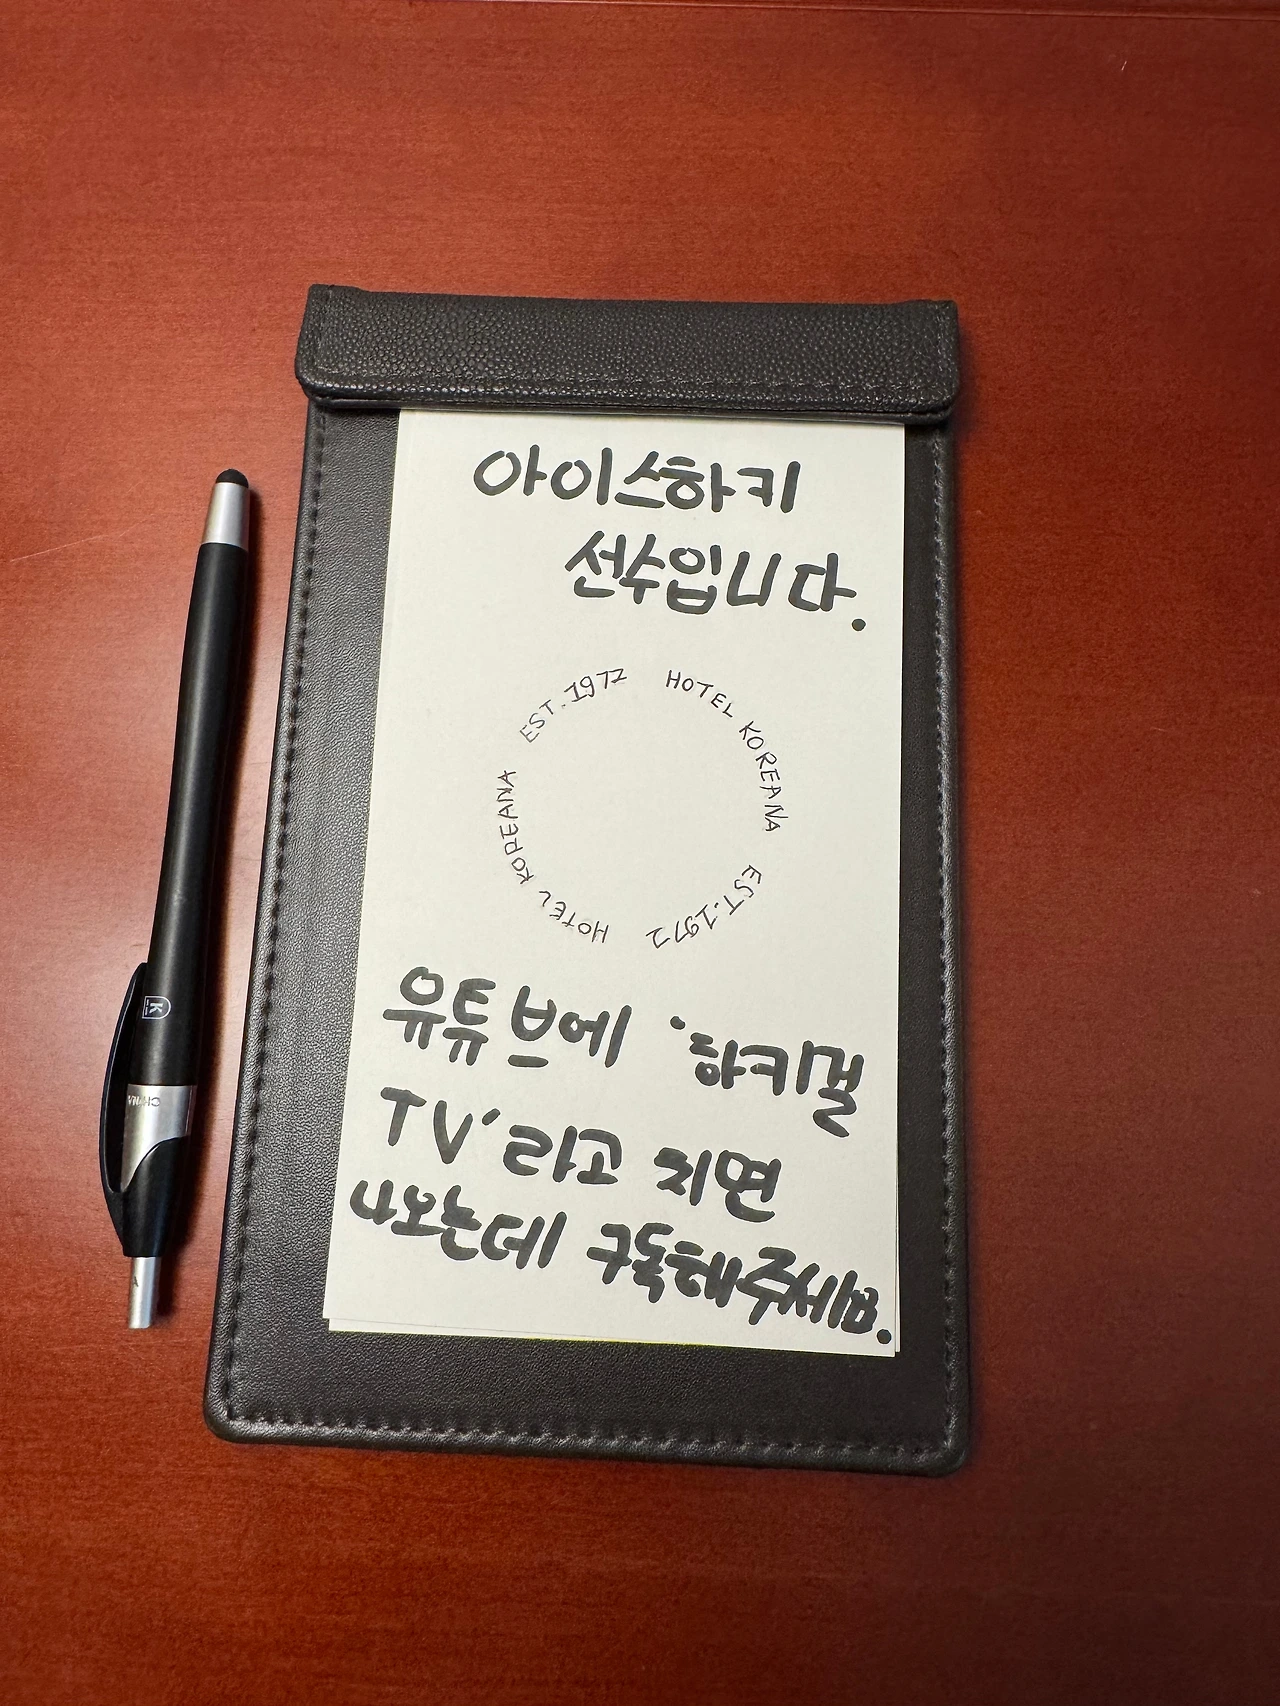 아이스하키
선수입니다.
EST. 1972 HOTEL KOREANA
EST. 1972 HOTEL KOREANA
유튜브에 '하키걸
TV'라고 치면
나오는데 구독해주세요.
K
CHINA